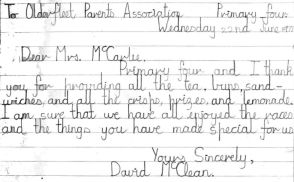 To Olderfleet Parents Association Primary four
Wednesday 22nd June
Dear Mrs. McCarlie.
Primary four and I thank
you for providing all the tea, buns, sand-
wiches, and all the crisps, prizes, and lemonade.
I am sure that we have all enjoyed the races
and the things you have made special for us
Yours Sincerely,
David McClean.